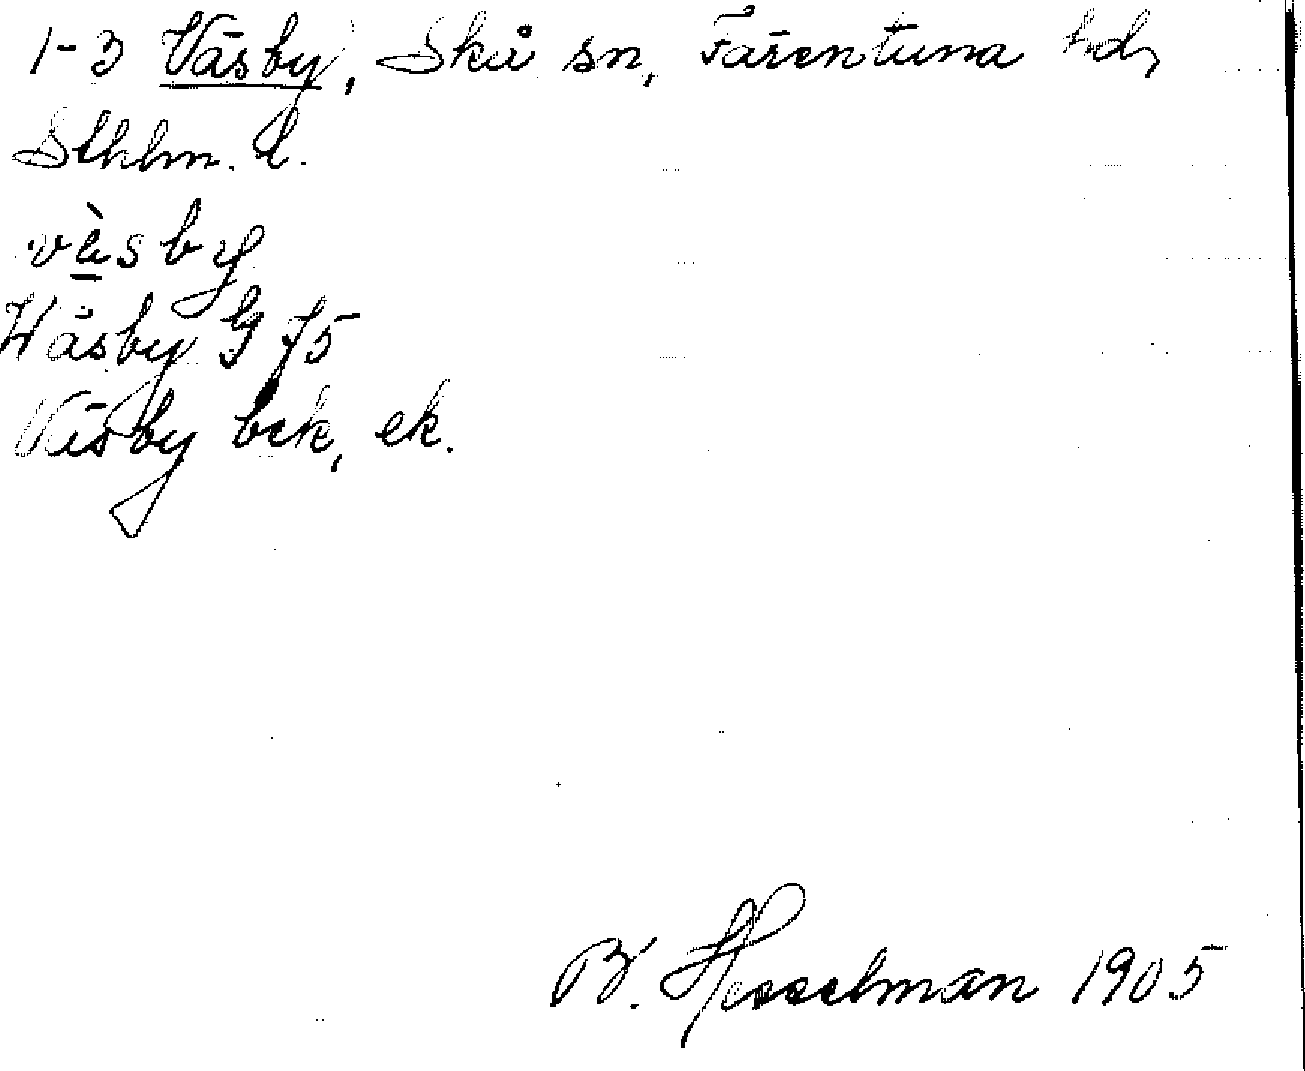 1-3 Väsby, Skå sn, Färentuna hd,
Sthlm. l.
vä̀sby
Wäsby G 75
Väsby bek, ek.
B. Hesselman 1905